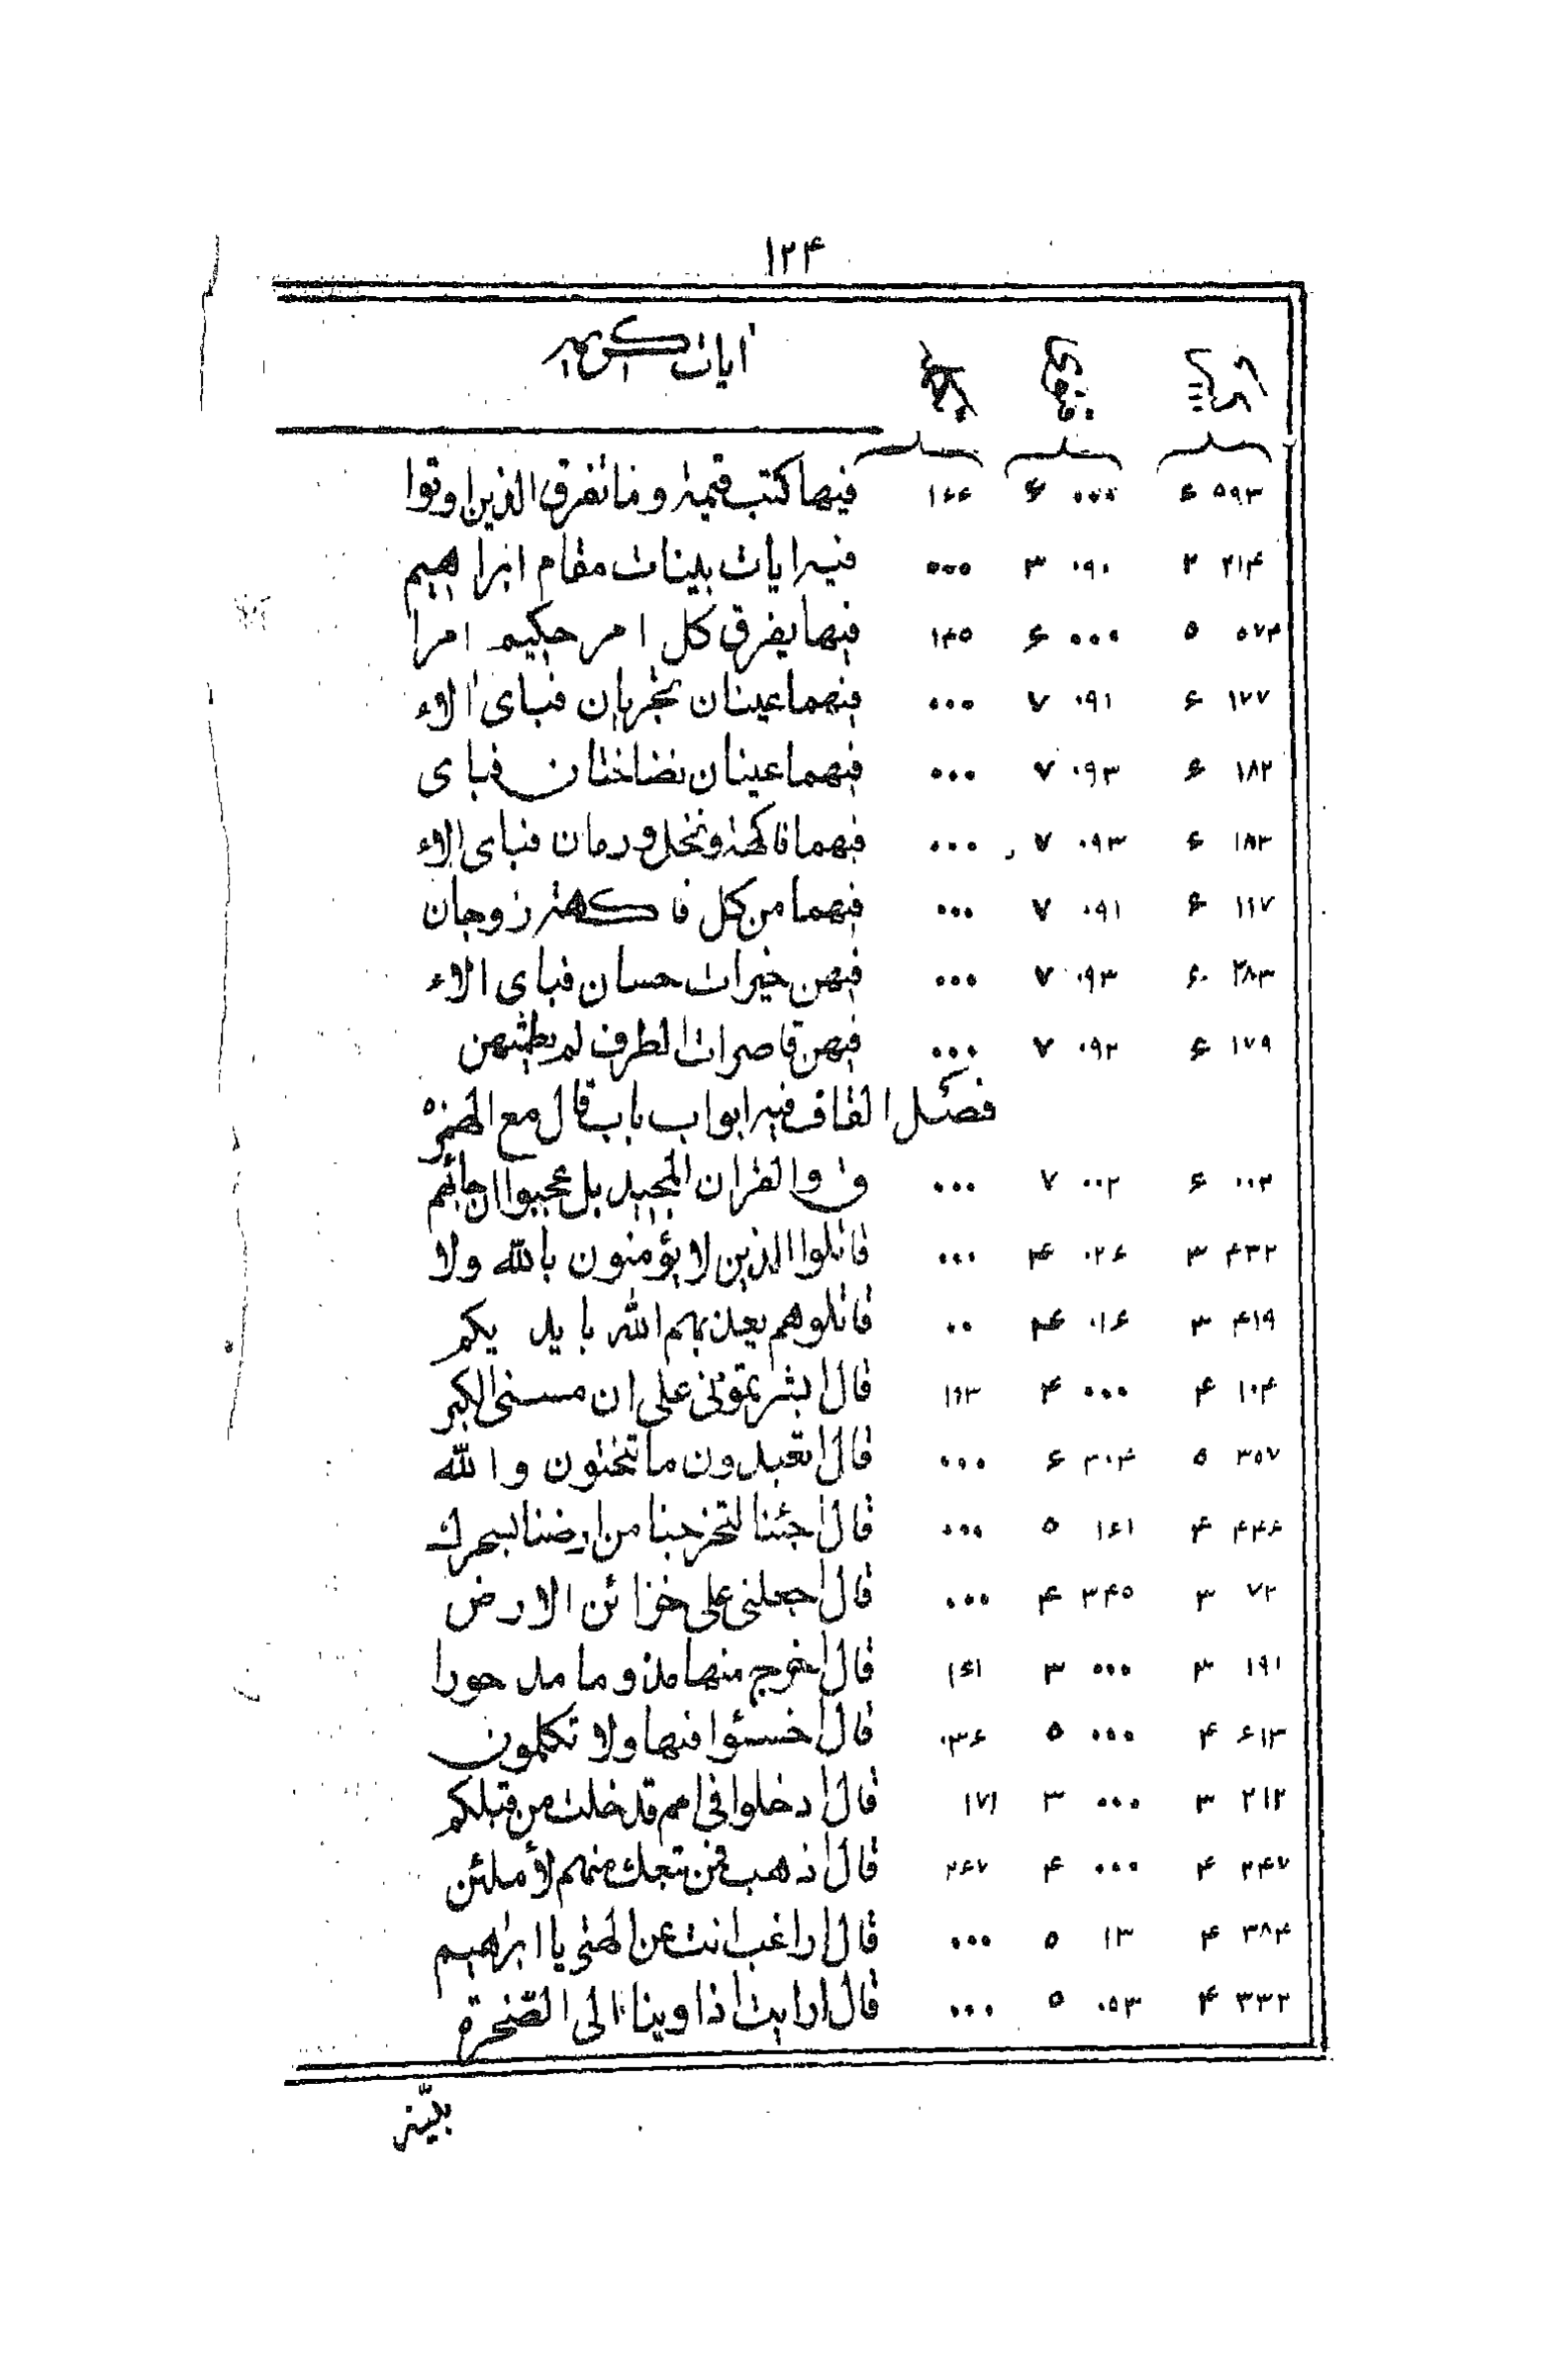 ۱۲۴
ایات کریمه
۵۹۳ ۶ ۰۰۰ ۶ ۱۶۶ فیها کتب قیمة وما تفرق الذین اوتوا
۲۱۴ ۲ ۰۹۰ ۳ ۰۰۰ فیه ایات بینات مقام ابراهیم
۵۷۴ ۵ ۰۰۰ ۶ ۱۴۵ فیها یفرق کل امر حکیم امرا
۱۷۷ ۶ ۰۹۱ ۷ ۰۰۰ فیهما عینان تجریان فبای الاء
۱۸۲ ۶ ۰۹۳ ۷ ۰۰۰ فیهما عینان نضاختان فبای
۱۸۳ ۶ ۰۹۳ ۷ ۰۰۰ فیهما فاکهة ونخل ورمان فبای الاء
۱۱۷ ۶ ۰۹۱ ۷ ۰۰۰ فیهما من کل فاکهة زوجان
۲۸۳ ۶ ۰۹۳ ۷ ۰۰۰ فیهن خیرات حسان فبای الاء
۱۷۹ ۶ ۰۹۲ ۷ ۰۰۰ فیهن قاصرات الطرف لم یطمثهن
فصل القاف فیه ابواب باب قال مع الهمزه
۰۰۲ ۶ ۰۰۲ ۷ ۰۰۰ ق والقران المجید بل عجبوا ان جائهم
۴۳۲ ۳ ۰۲۶ ۴ ۰۰۰ قاتلوا الذین لا یؤمنون بالله ولا
۴۱۹ ۳ ۰۱۶ ۴ ۰۰ قاتلوهم یعذبهم الله بایدیکم
۱۰۴ ۴ ۰۰۰ ۴ ۱۱۳ قال ابشرتمونی علی ان مسنی الکبر
۳۵۷ ۵ ۳۰۴ ۶ ۰۰۰ قال اتعبدون ما تنحتون والله
۴۴۶ ۴ ۱۶۱ ۵ ۰۰۰ قال اجئتنا لتخرجنا من ارضنا بسحرك
۷۲ ۳ ۳۴۵ ۴ ۰۰۰ قال اجعلنی علی خزائن الارض
۱۹۱ ۳ ۰۰۰ ۳ ۱۶۱ قال اخرج منها مذوما مدحورا
۶۱۳ ۴ ۰۰۰ ۵ ۰۳۶ قال اخسئوا فیها ولا تکلمون
۲۱۲ ۳ ۰۰۰ ۳ ۱۷۱ قال ادخلوا فی امم قد خلت من قبلکم
۲۴۷ ۴ ۰۰۰ ۴ ۲۶۷ قال اذهب فمن تبعك منهم لأملئن
۳۸۴ ۴ ۱۳ ۵ ۰۰۰ قال اراغب انت عن الهتی یا ابراهیم
۳۳۲ ۴ ۰۵۳ ۵ ۰۰۰ قال ارایت اذ اوینا الی الصخرة